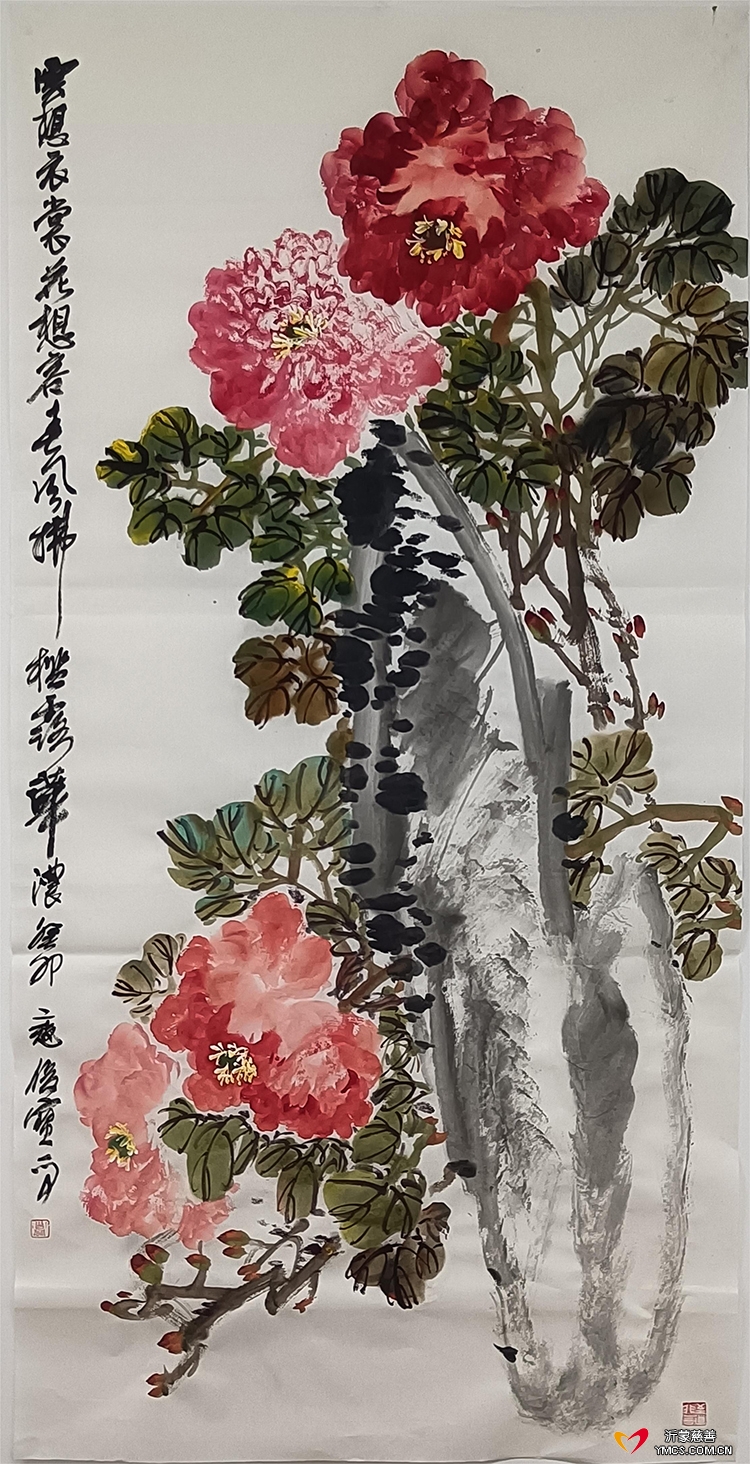 雲想衣裳花想容春風拂檻露華濃癸卯寇俊寶寫
沂蒙慈善
YMCS.COM.CN